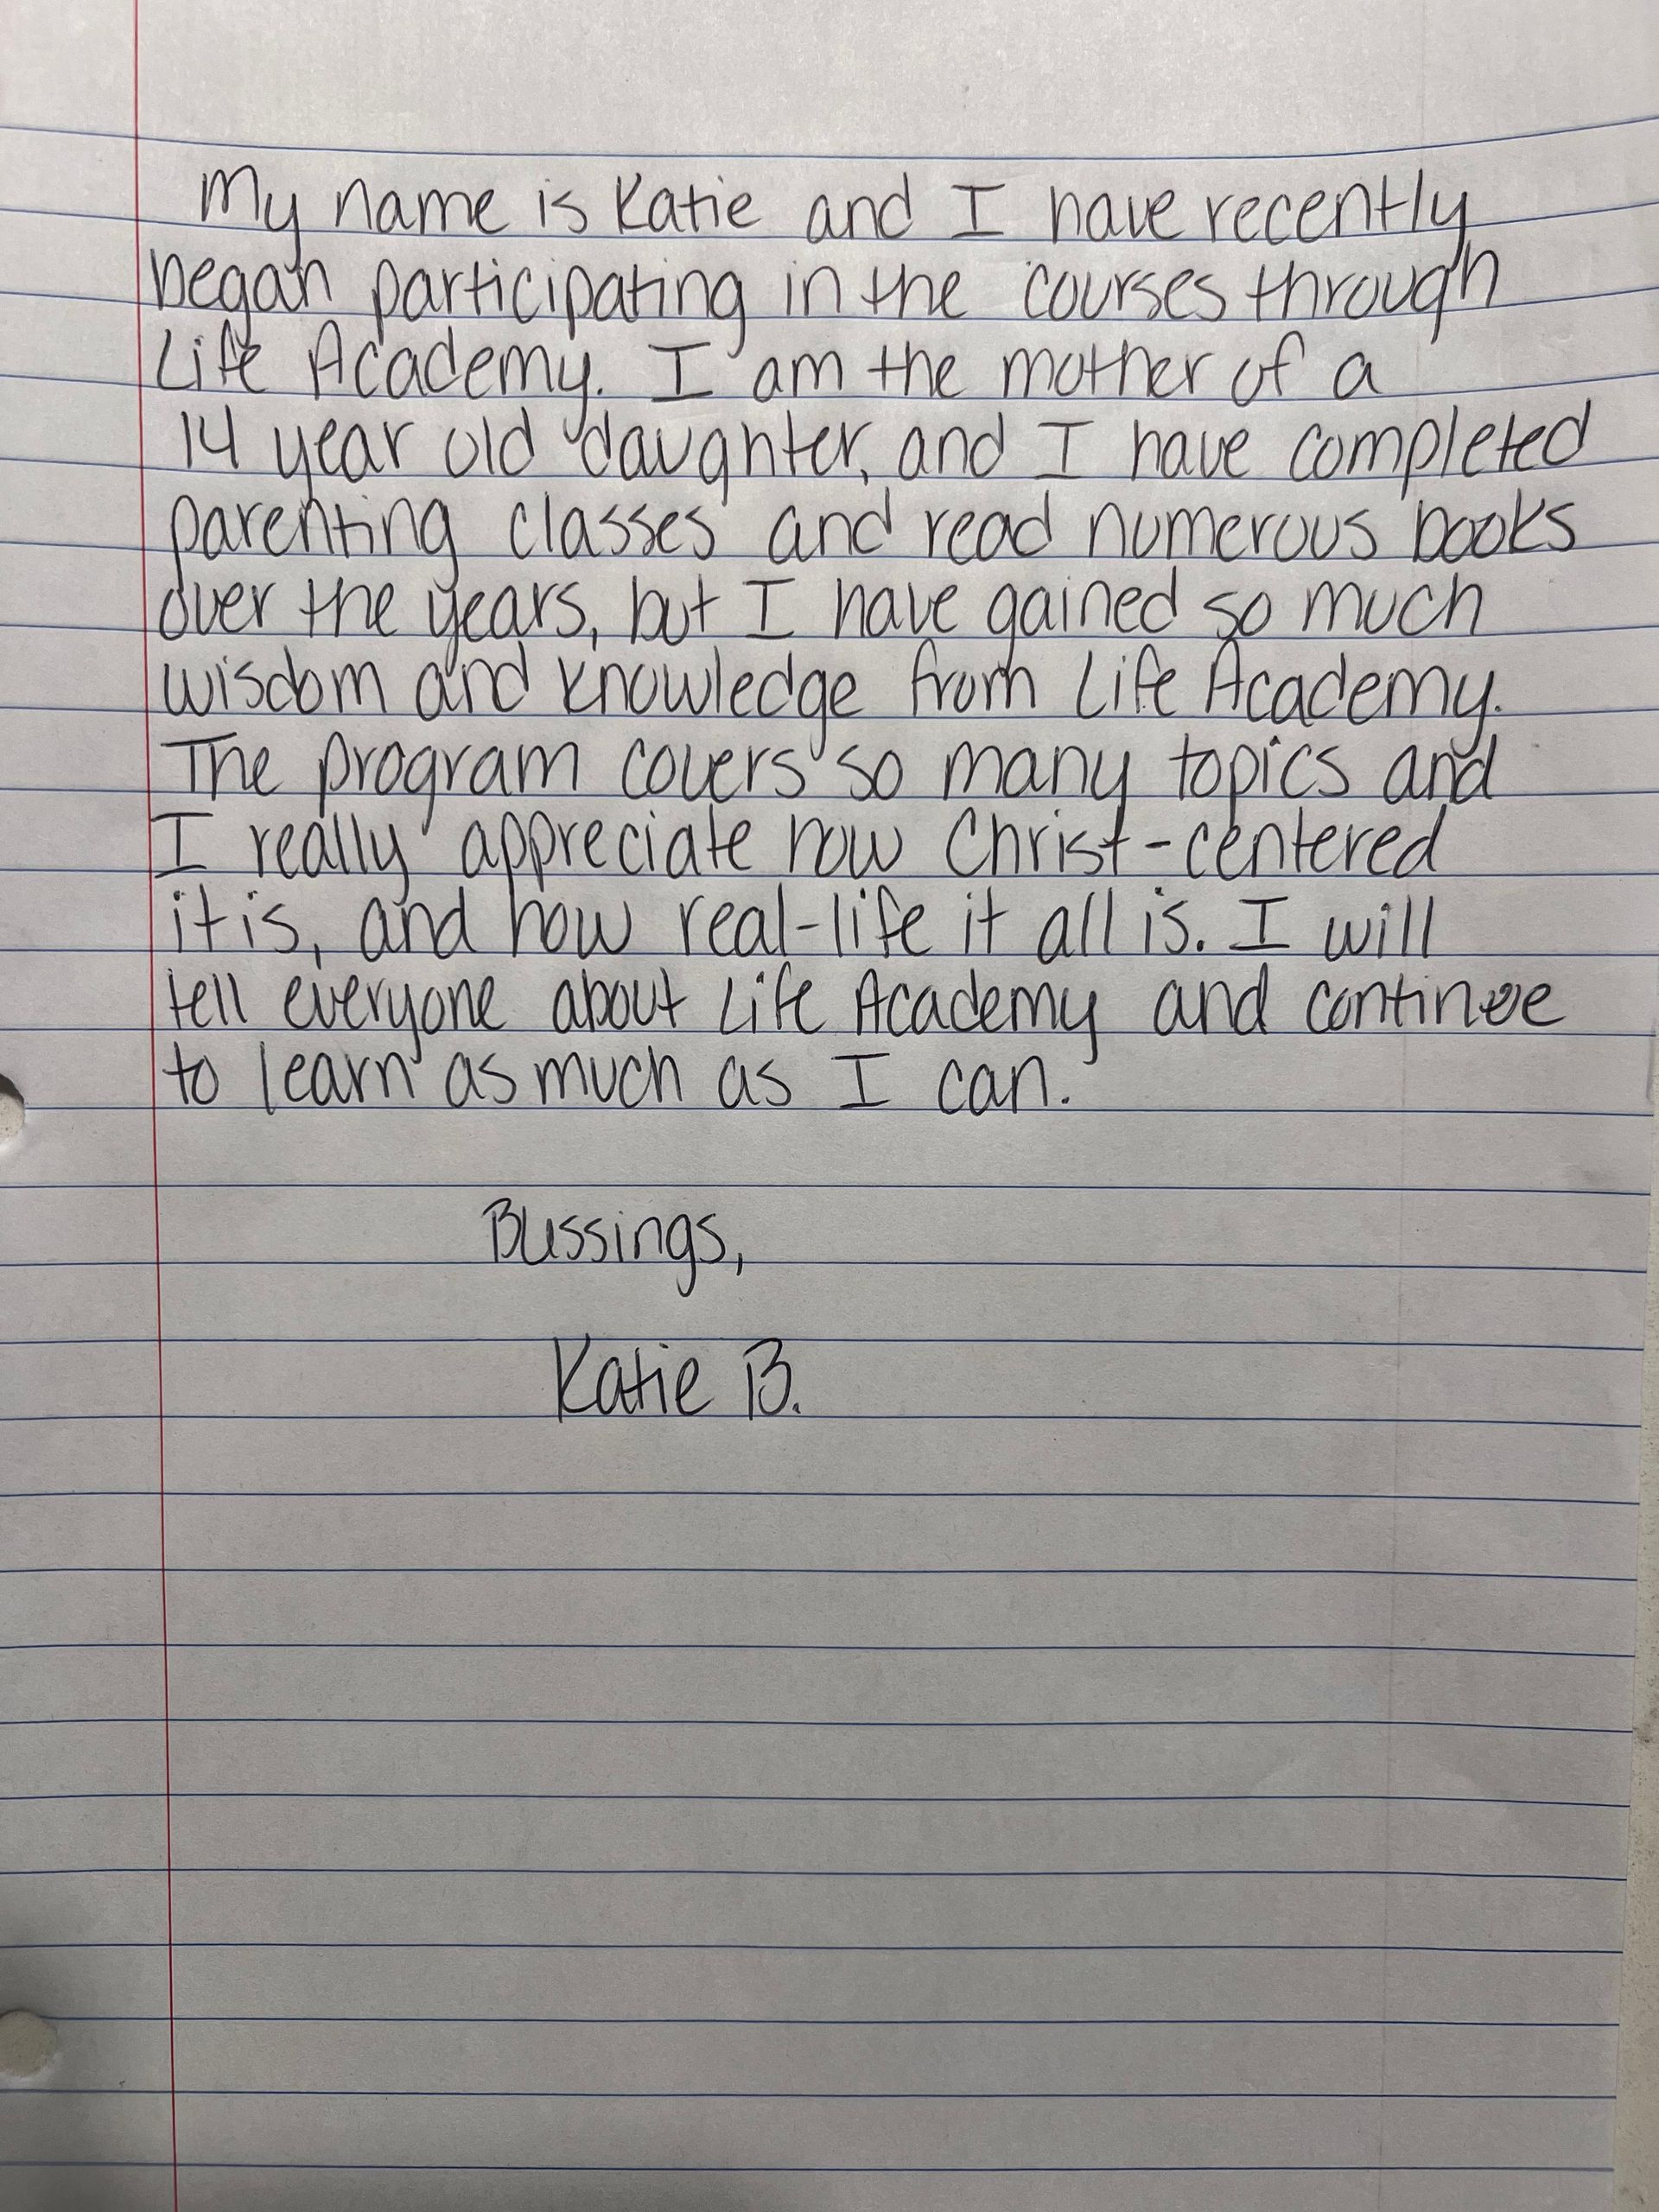 My name is Katie and I have recently
began participating in the courses through
Life Academy. I am the mother of a
14 year old daughter, and I have completed
parenting classes and read numerous books
over the years, but I have gained so much
wisdom and knowledge from Life Academy.
The program covers so many topics and
I really appreciate how Christ-centered
it is, and how real-life it all is. I will
tell everyone about Life Academy and continue
to learn as much as I can.
Blessings,
Katie B.